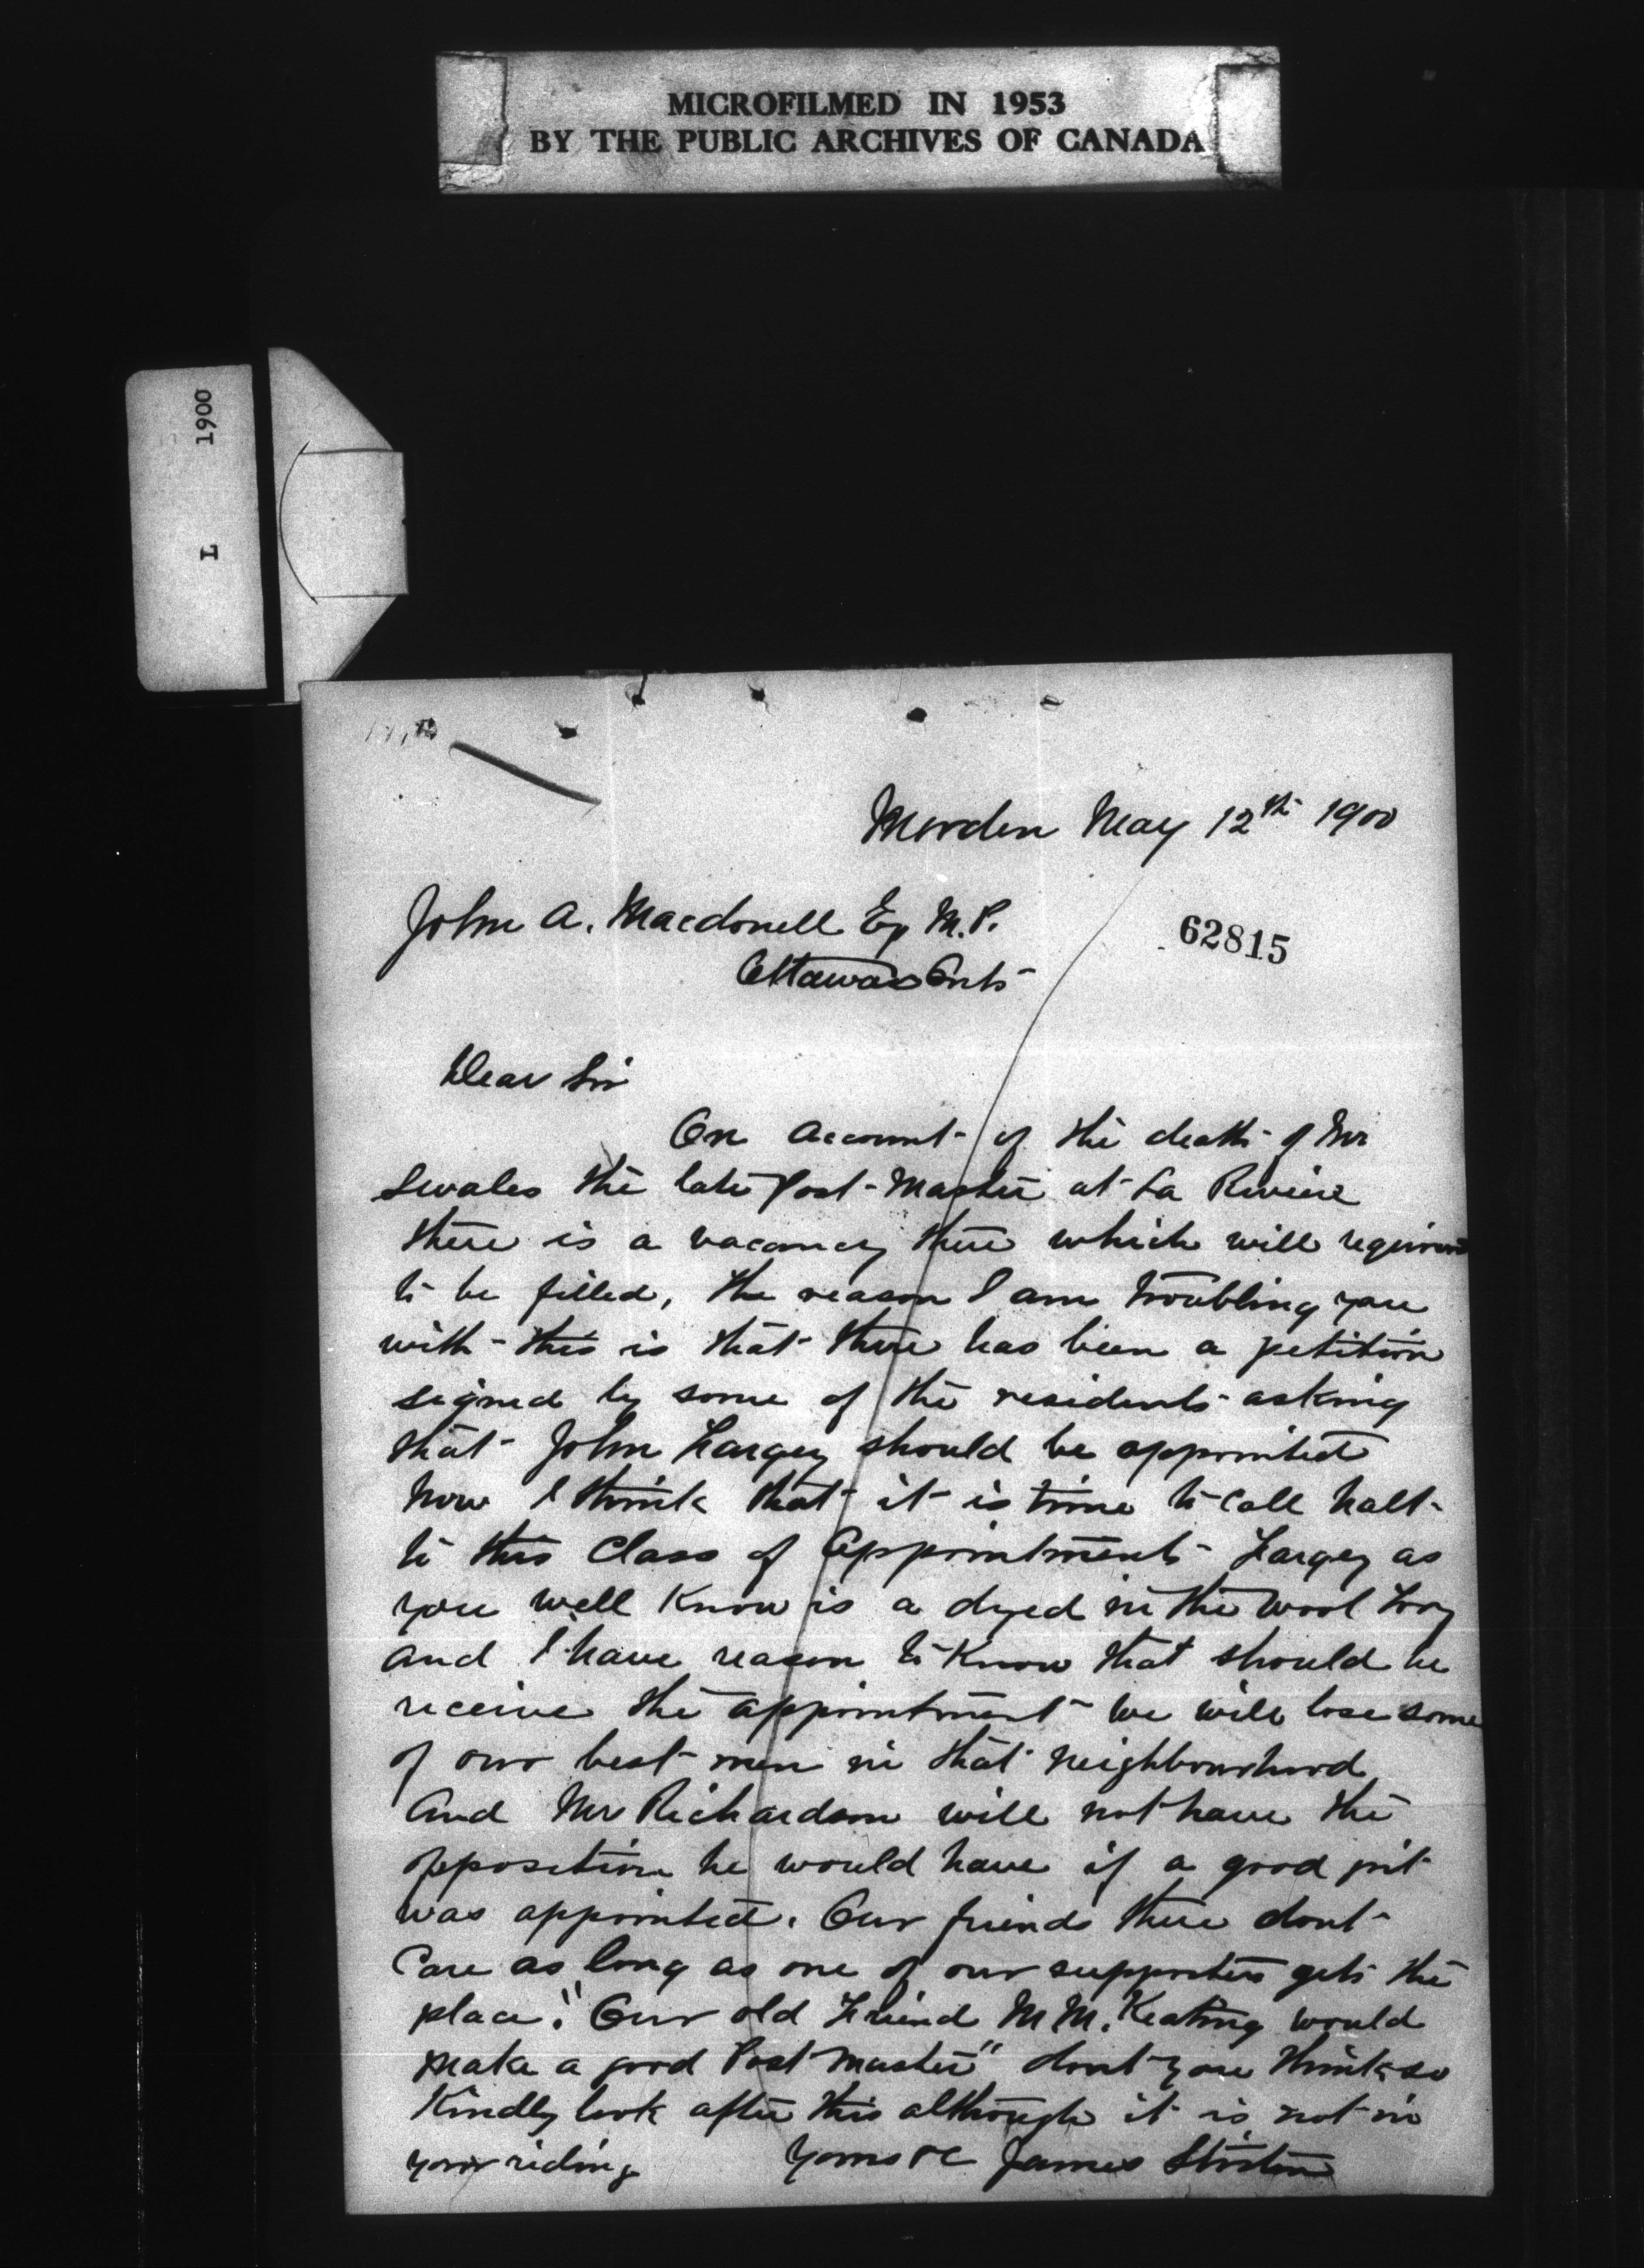 MICROFILMED IN 1953
BY THE PUBLIC ARCHIVES OF CANADA
L 1900
Morden May 12th 1900
John A. Macdonell Esq M.P.
62815
Ottawa Onto
Dear Sir
On account of the death of Mr
Swales the late Post-Master at La Riviere
there is a vacancy there which will require
to be filled, the reason I am troubling you
with this is that there has been a petition
signed by some of the residents asking
that John Fargey should be appointed
Now I think that it is time to call halt
to this Class of Appointments Fargey as
you well Know is a dyed in the wool Tory
and I have reason to Know that should he
receive the appointment we will lose some
of our best men in that neighbourhood
And Mr Richardson will not have the
opposition he would have if a good grit
was appointed. Our friends there dont
Care as long as one of our supporters gets the
place. "Our old Friend M M. Keating would
make a good Post master" dont you think so
Kindly look after this although it is not in
your riding Yours &c James